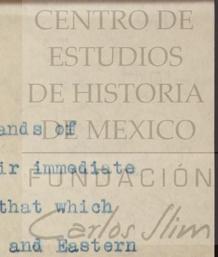 CENTRO DE
ESTUDIOS
DE HISTORIA
DE MEXICO
ands of
ir immediate
FUNDACIÓN
that which
Carlos Slim
and Eastern